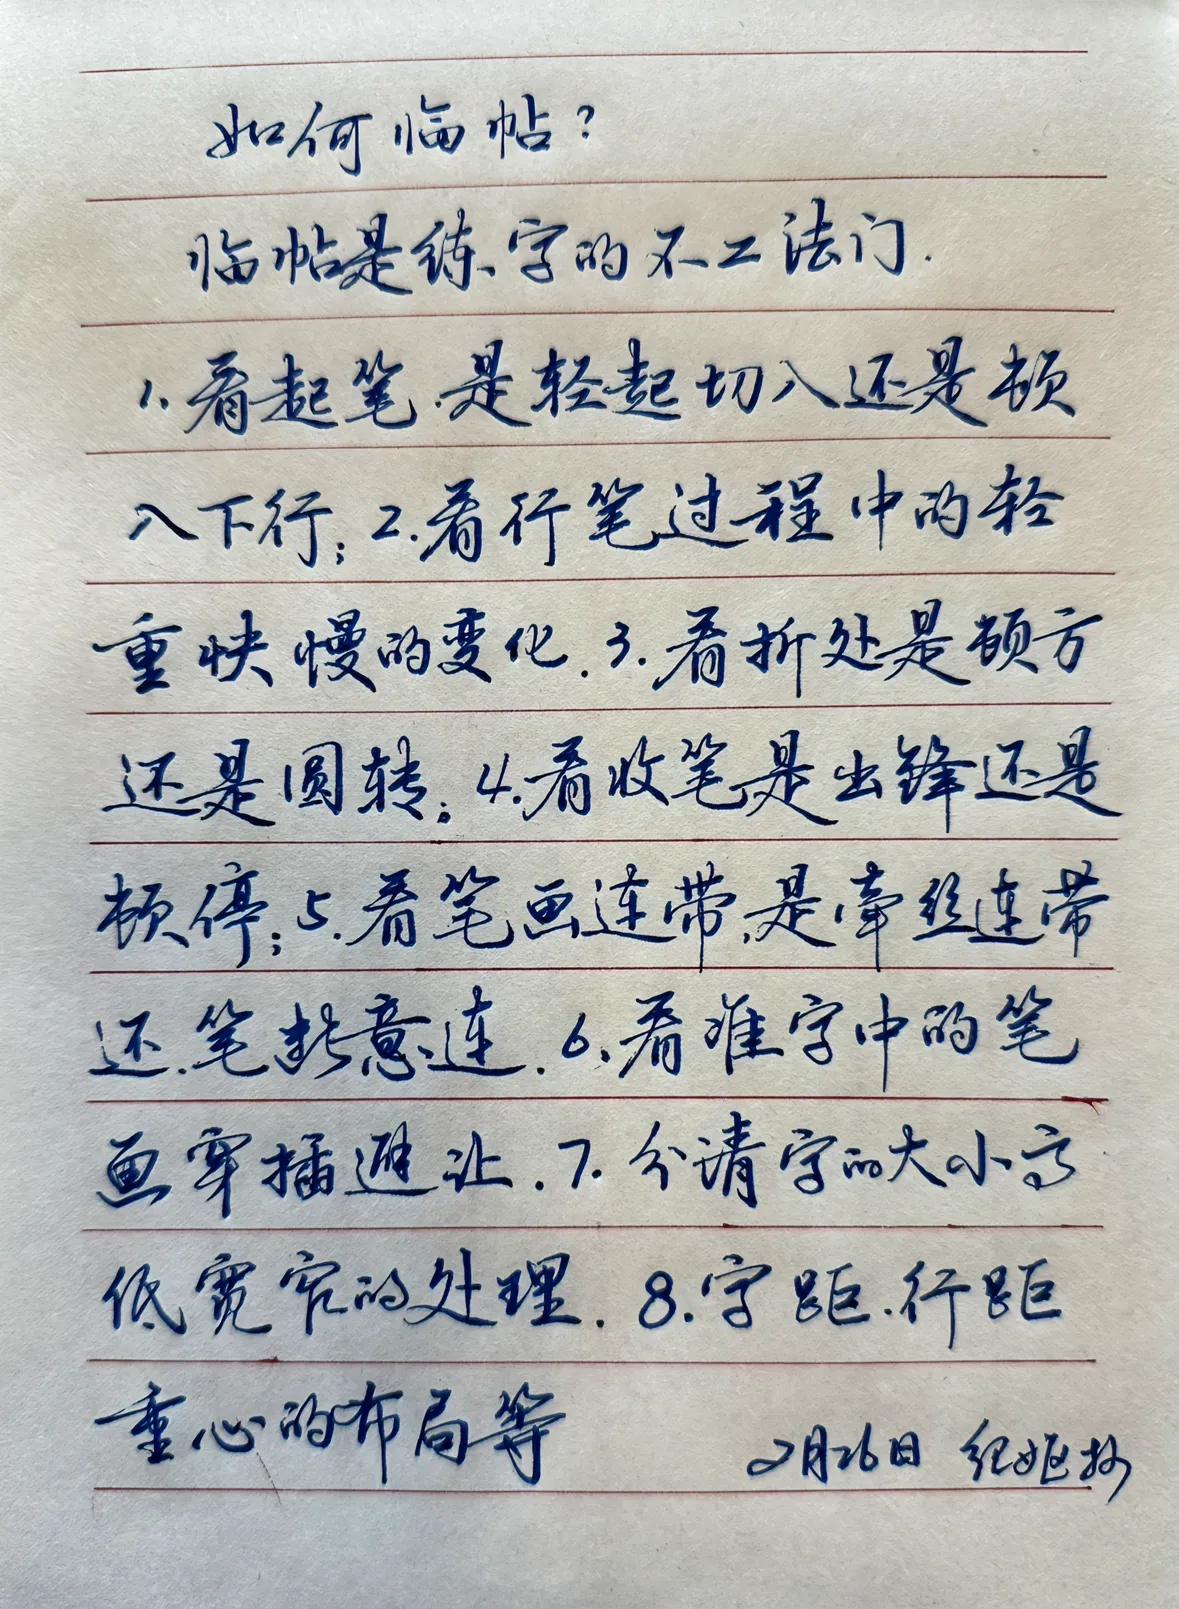 如何临帖？
临帖是练字的不二法门.
1.看起笔.是轻起切入还是顿
入下行；2.看行笔过程中的轻
重快慢的变化.3.看折处是顿方
还是圆转；4.看收笔是出锋还是
顿停；5.看笔画连带,是牵丝连带
还.笔断意连.6.看准字中的笔
画穿插避让.7.分请字的大小高
低宽窄的处理.8.字距.行距
重心的布局等
2月26日 纪姬抄